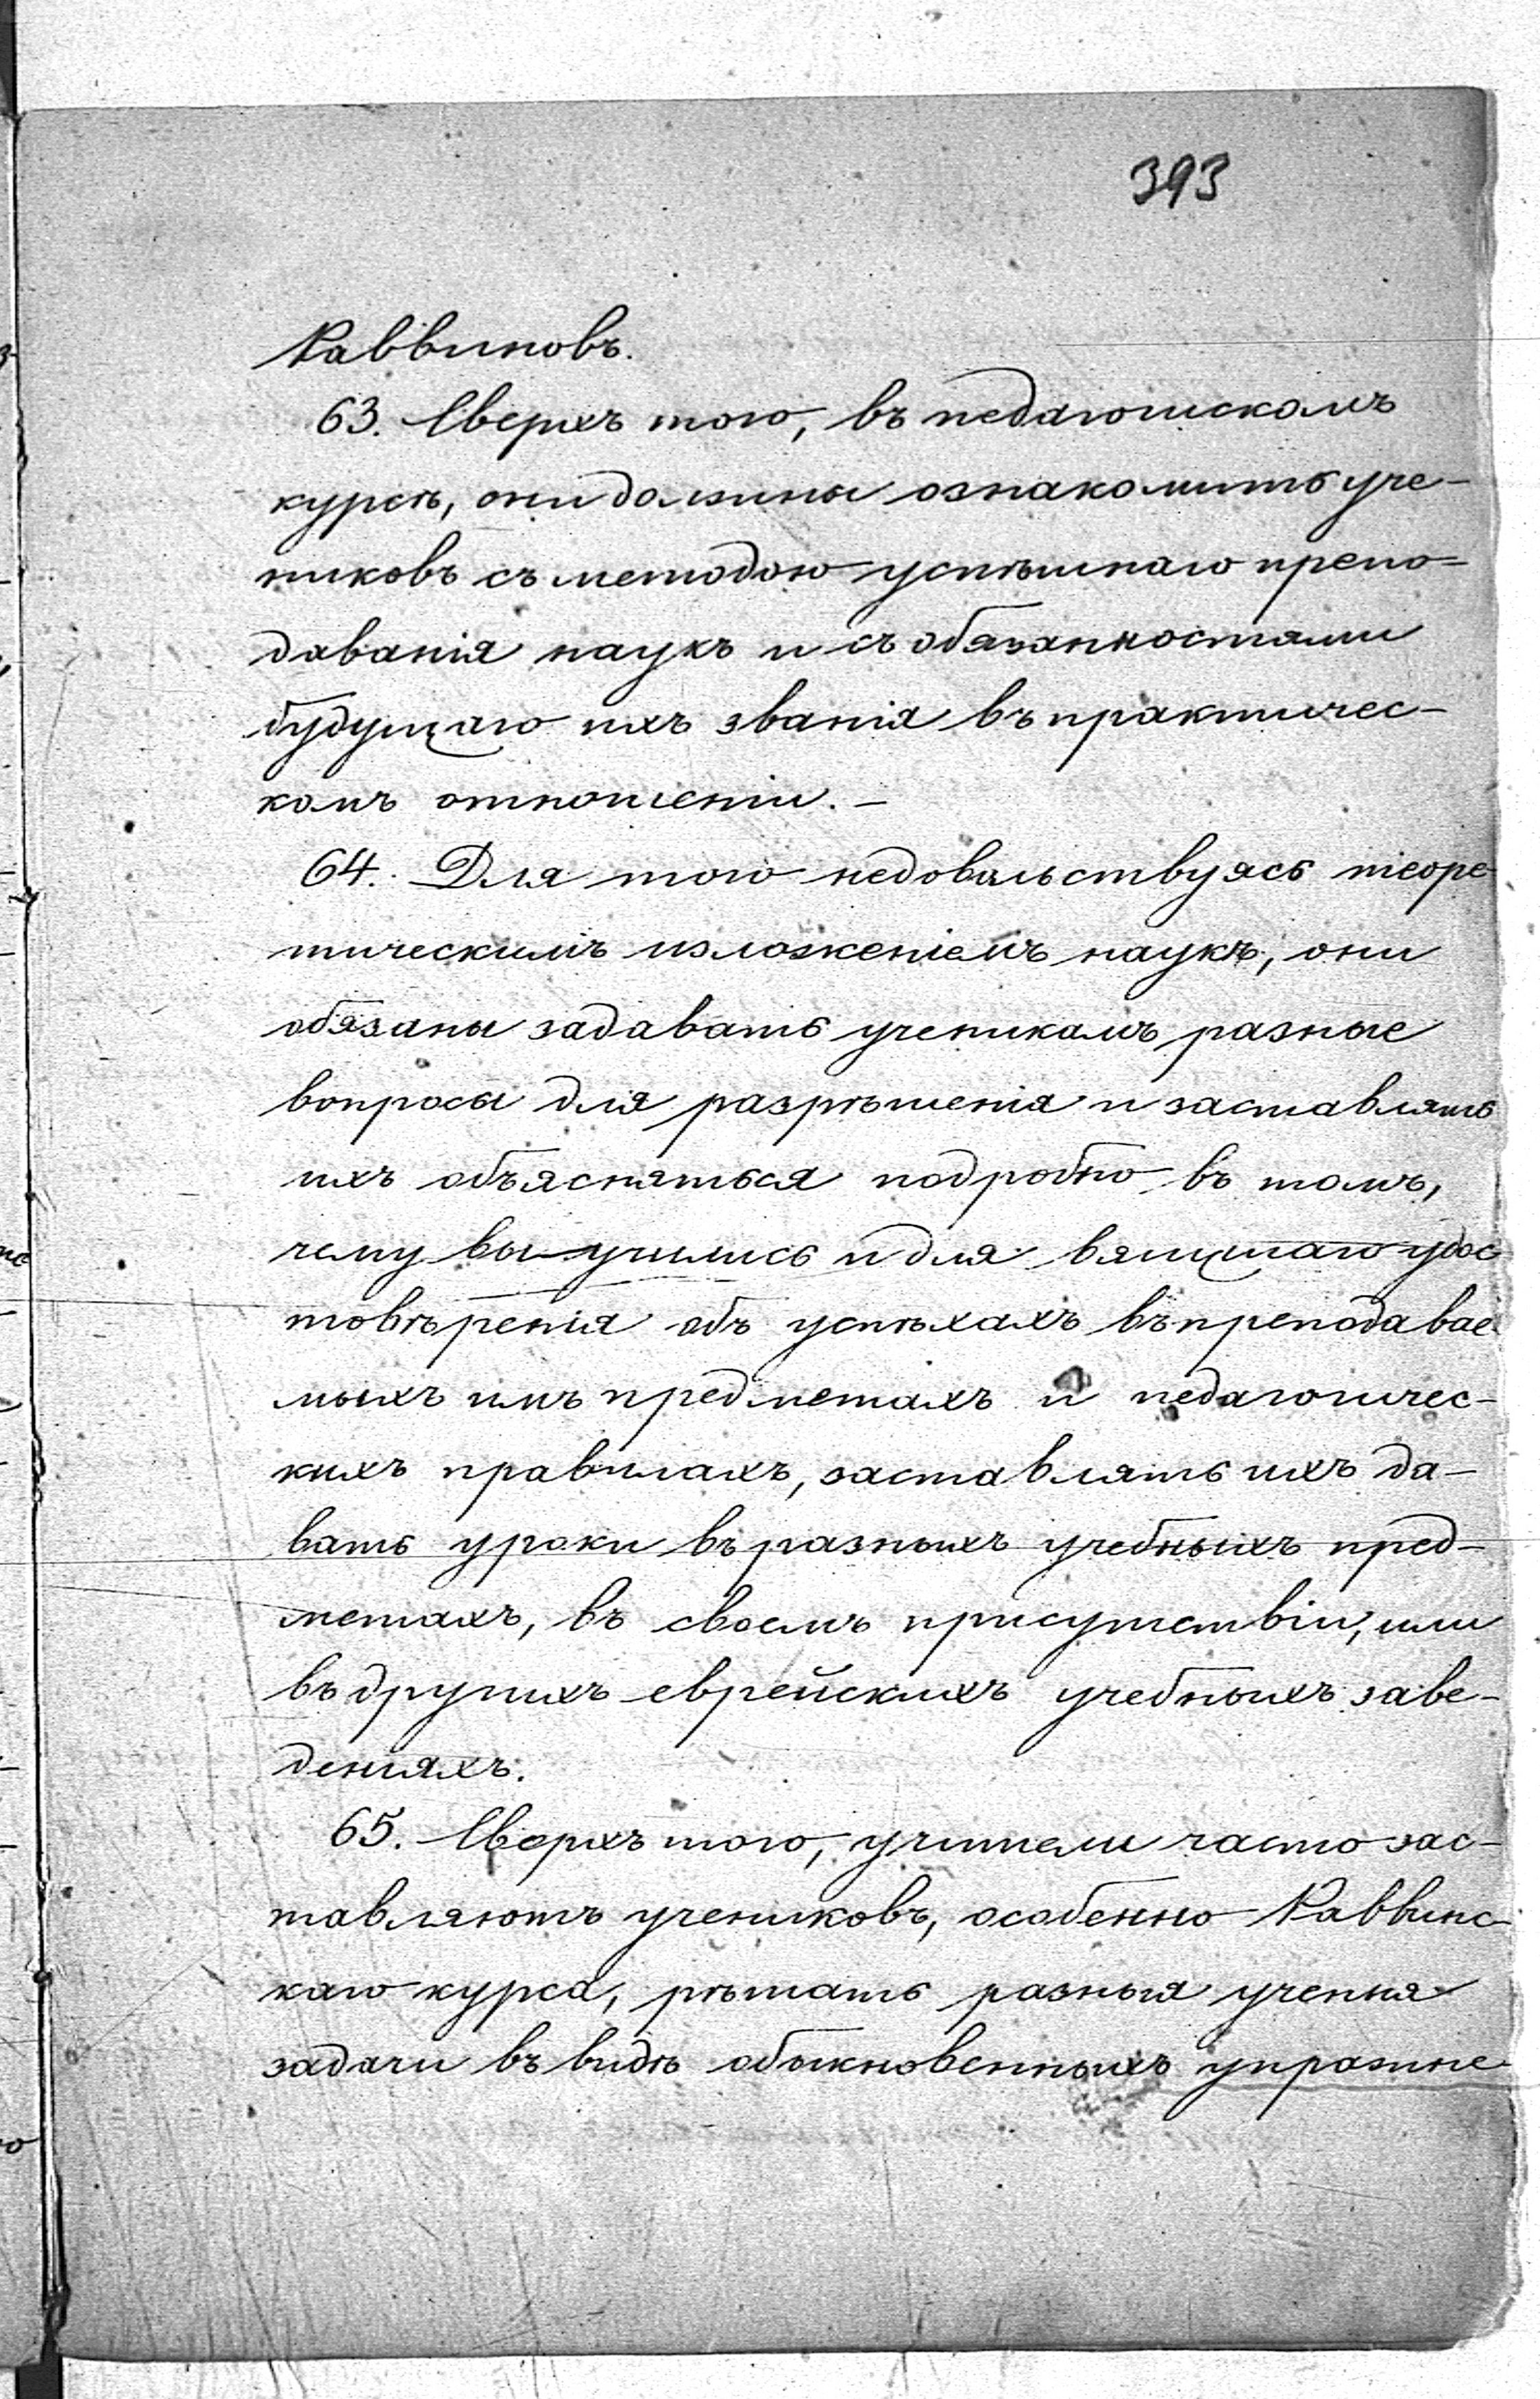 393
Раввиновъ.
63. Сверхъ того, въ педагогискомъ
курсѣ, они должны ознакомить уче-
никовъ съ методою успѣшнаго препо-
даванія наукъ и съ обязанностями
будущаго ихъ званія въ практичес-
комъ отношеніи. –
64. Для того недовольствуясь теоре-
тическимъ изложеніемъ наукъ, они
обязаны задавать ученикамъ разные
вопросы для разрѣшенія и заставлять
ихъ объясняться подробно въ томъ,
чему выучились и для вящшаго удос-
товѣренія объ успѣхахъ въ преподавае-
мыхъ имъ предметахъ и педагогичес-
кихъ правилахъ, заставлять ихъ да-
вать уроки въ разныхъ учебныхъ пред-
метахъ, въ своемъ присутствіи, или
въ другихъ еврейскихъ учебныхъ заве-
деніяхъ.
65. Сверхъ того, учители часто зас-
тавляютъ учениковъ, особенно Раввинс-
каго курса, рѣшать разныя ученыя
задачи въ видѣ обыкновенныхъ упражне-